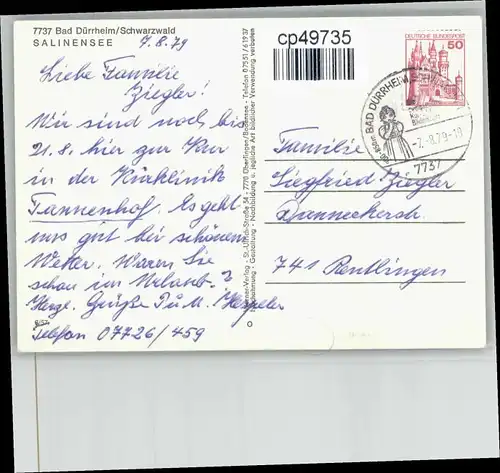 7737 Bad Dürrheim/Schwarzwald
SALINENSEE
7.8.79
Liebe Familie
Ziegler!
Wir sind noch bis
21.8. hier zur Kur
in der Kurklinik
Tannenhof. Es geht
uns gut bei schönem
Wetter. Waren Sie
schon im Urlaub?
Herzl. Grüße I u. M.
Telefon 07726/459
St.-Ulrich-Straße 34 - 7770 Überlingen/Bodensee - Telefon 07551/61937
Gestaltung - Nachbildung u. jegliche Art bildlicher Verwendung verboten
cp49735
DEUTSCHE BUNDESPOST
50
BAD DÜRRHEIM
-7.-8.79-18
7737
Familie
Siegfried Ziegler
Danneckerstr.
741 Reutlingen